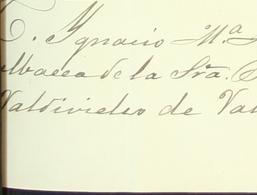 Ygnacio M.ª
albacea de la Sra.
Valdivielso de Val